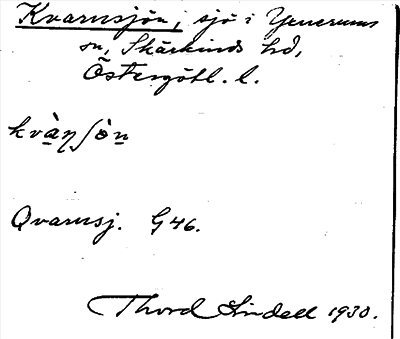 Kvarnsjön, sjö i Yxnerums
sn, Skärkinds hd,
Östergötl. l.
kvàn̥ʃò̱n̲
Qvarnsj. G 46.
Thord Lindell 1930.